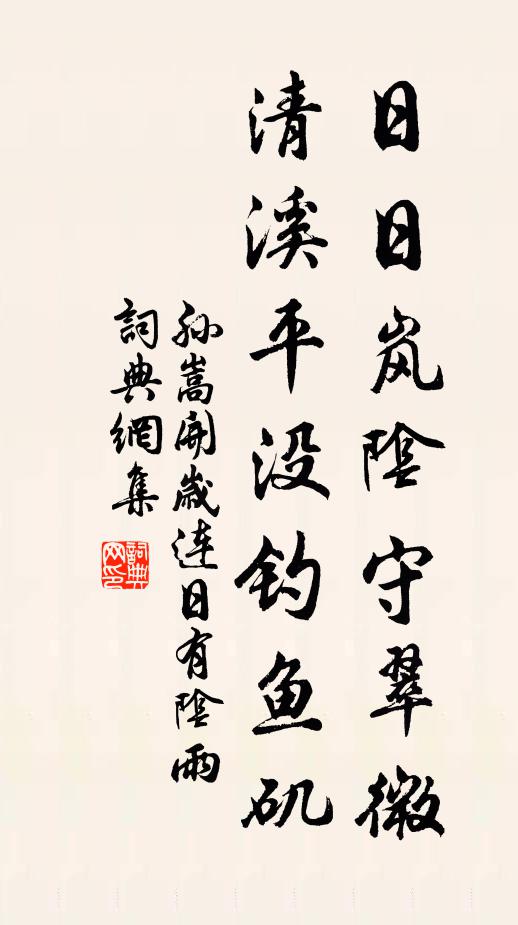 日日岚陰守翠微
清溪平没钓鱼矶
孙嵩開歳连日有陰雨
詞典網集
詞典网印